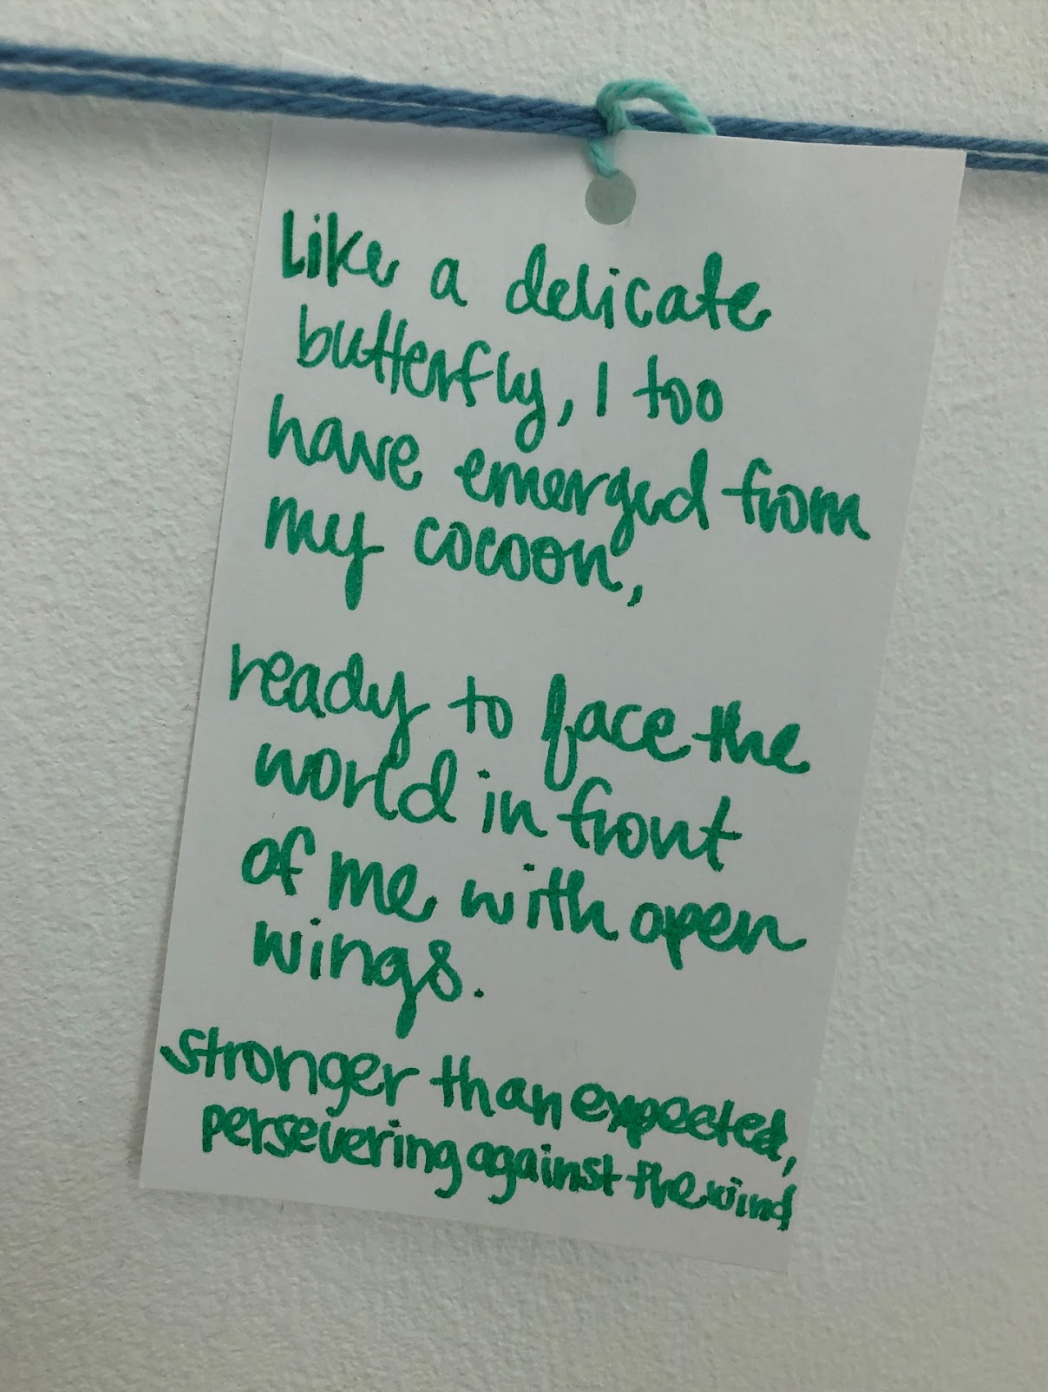 Like a delicate
butterfly, I too
have emerged from
my cocoon,
ready to face the
world in front
of me with open
wings.
stronger than expected,
persevering against the wind